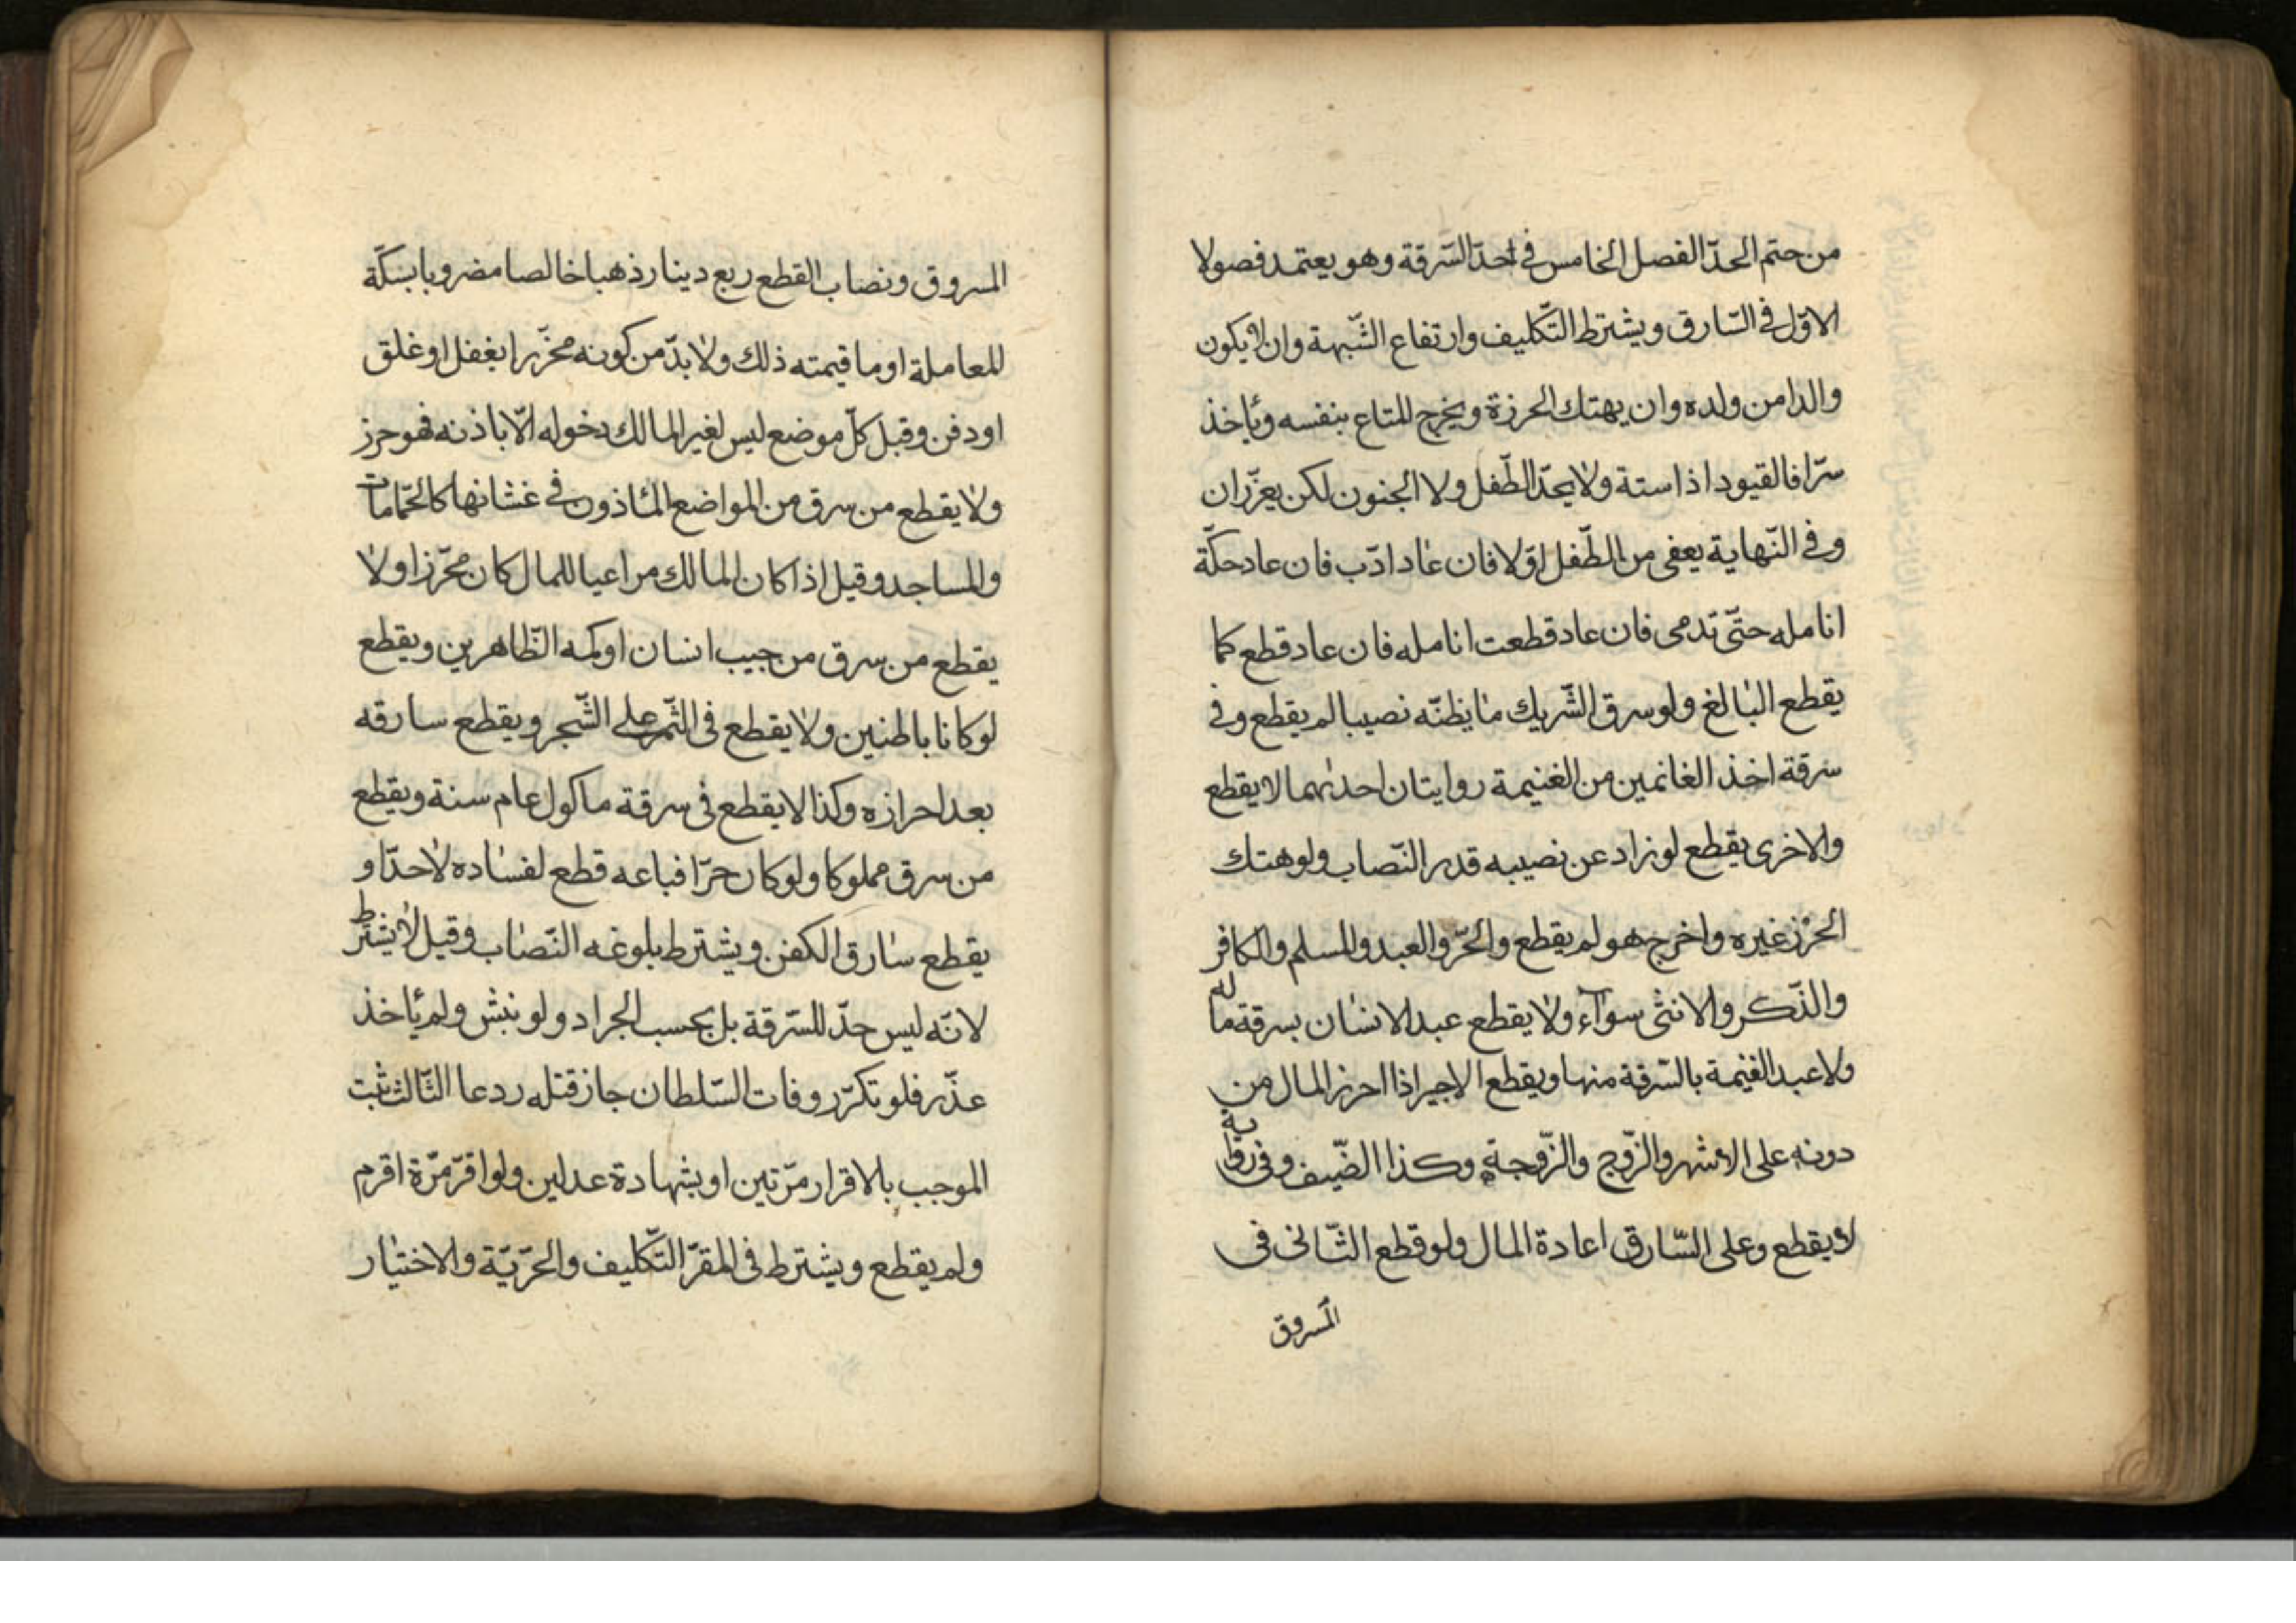 من حتم الحدّ الفصل الخامس في احدّ السّرقة وهو يعتمد فصولا
الاوّل في السّارق ويشترط التّكليف وارتفاع الشّبهة وان لا يكون
والدا من ولده وان يهتك الحرزة ويخرج المتاع بنفسه ويأخذ
سرّا فالقيود اذا ستة ولا يحدّ الطّفل ولا المجنون لكن يعزّران
وفي النّهاية يعفى من الطّفل اوّلا فان عاد ادّب فان عاد حكّة
انامله حتّى تدمى فان عاد قطعت انامله فان عاد قطع كما
يقطع البالغ ولو سرق الشّريك ما يظنّه نصيبا لم يقطع وفي
سرقة اخذ الغانمين من الغنيمة روايتان احدىهما لا يقطع
والاخرى يقطع لو زاد عن نصيبه قدر النّصاب ولو هتك
الحرْز غيره واخرج هو لم يقطع والحرّ والعبد والمسلم والكافر
والذّكر والانثى سوآء ولا يقطع عبد الانسان بسرقة ماله
ولا عبد الغنيمة بالسّرقة منها ويقطع الاجير اذا احرز المال من
دونه على الاشهر والزّوج والزّوجة وكذا الضّيف وفي رواية
لا يقطع وعلى السّارق اعادة المال ولو قطع الثّاني في
المسروق
المسروق ونصاب القطع ربع دينار ذهبا خالصا مضروبا بسكّة
المعاملة او ما قيمته ذلك ولا بدّ من كونه محرّزا بغفل او غلق
او دفن وقيل كلّ موضع ليس لغير المالك دخوله الّا باذنه فهو حرز
ولا يقطع من سرق من المواضع المأذون في غشانها كالحمّامات
والمساجد وقيل اذا كان المالك مراعيا للمال كان محرّزا ولا
يقطع من سرق من جيب انسان او كمه الظّاهرين ويقطع
لو كانا باطنين ولا يقطع في الثّمر على الشّجر ويقطع سارقه
بعد احرازه وكذا لا يقطع في سرقة ماكول عام سنة ويقطع
من سرق مملوكا ولو كان حرّا فباعه قطع لفساده لا حدّا و
يقطع سارق الكفن ويشترط بلوغه النّصاب وقيل لا يشترط
لانّه ليس حدّ للسّرقة بل بحسب الجراد ولو نبش ولم يأخذ
عذّر فلو تكرّر وفات السّلطان جاز قتله ردعا الثّالث ثبت
الموجب بالاقرار مرّتين او بشهادة عدلين ولو اقرّ مرّة اقرم
ولم يقطع ويشترط في المقرّ التّكليف والحرّيّة والاختيار